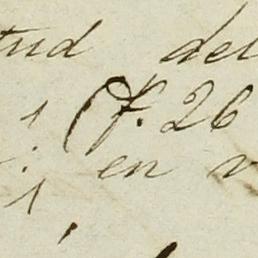 tud del
1 (f. 26
: en v
1